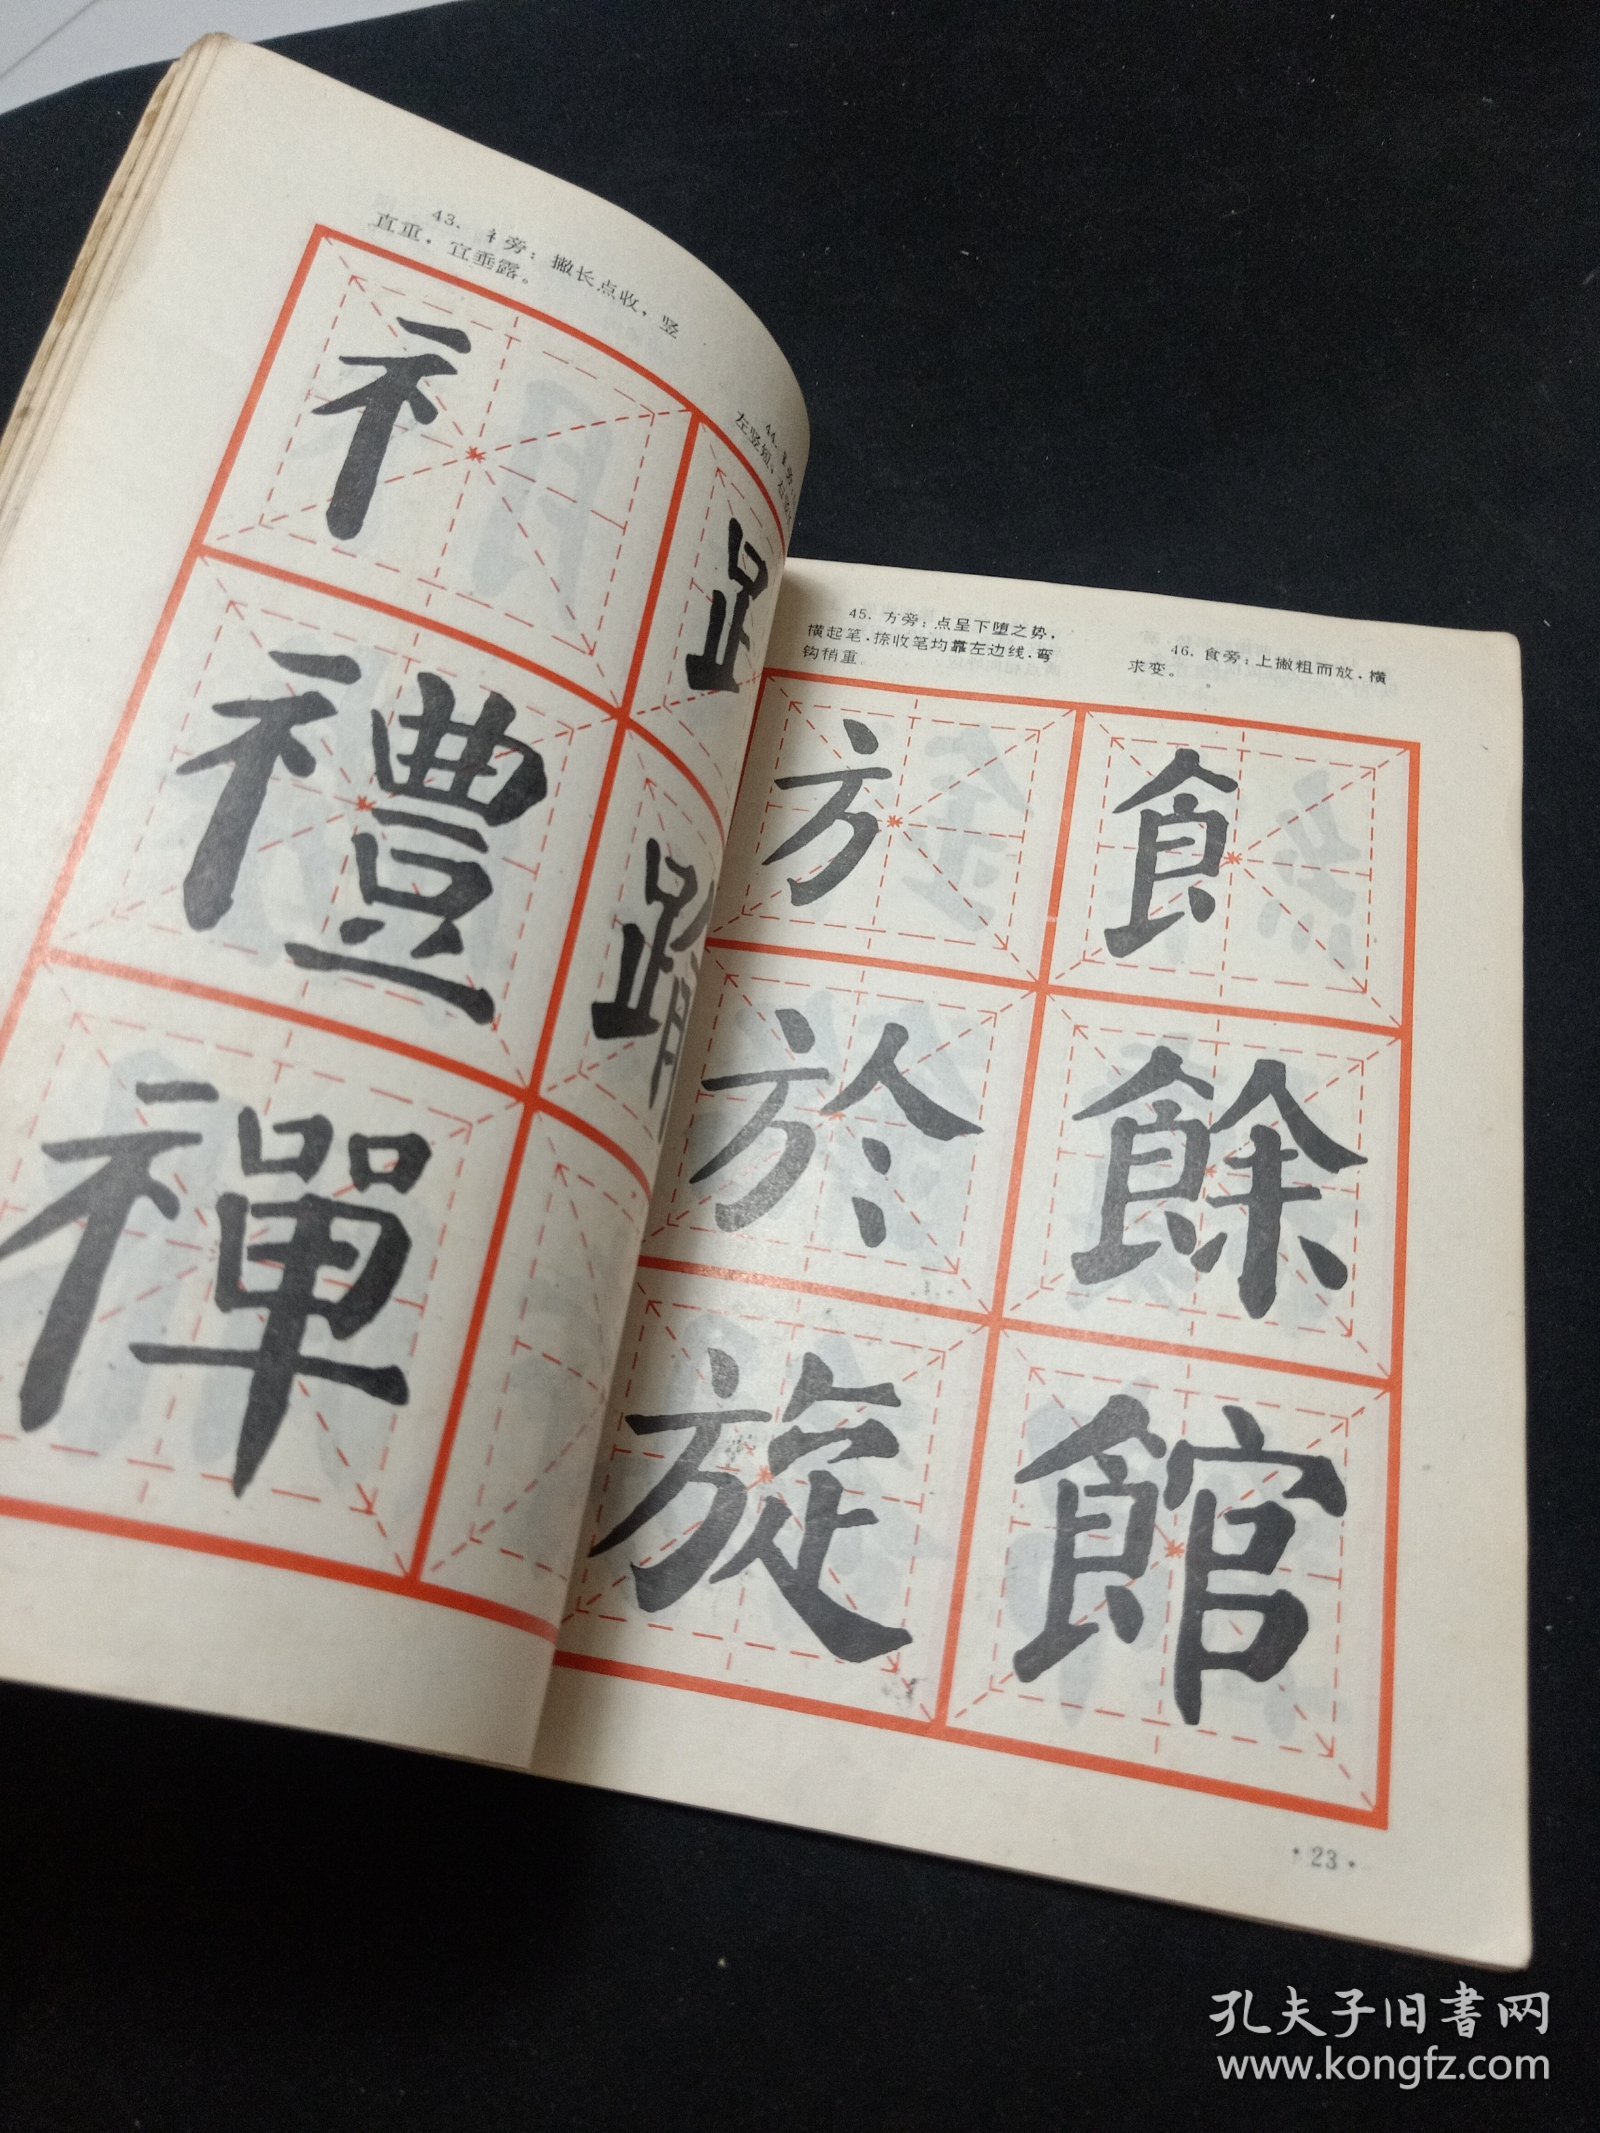 43. 礻旁：撇长点收，竖
直重，宜垂露。
礻
禮
禪
44.
左竖短，右竖
𧾷
45. 方旁：点呈下堕之势，
横起笔、捺收笔均靠左边线，弯
钩稍重。
方
於
旋
46. 食旁：上撇粗而放，横
求变。
飠
餘
館
·23·
孔夫子旧书网
www.kongfz.com